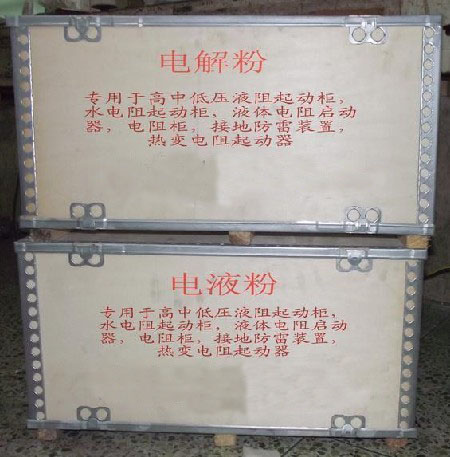 电解粉
专用于高中低压液阻起动柜，
水电阻起动柜、液体电阻启动
器，电阻柜，接地防雷装置，
热变电阻起动器
电液粉
专用于高中低压液阻起动柜，
水电阻起动柜，液体电阻启动
器，电阻柜，接地防雷装置，
热变电阻起动器